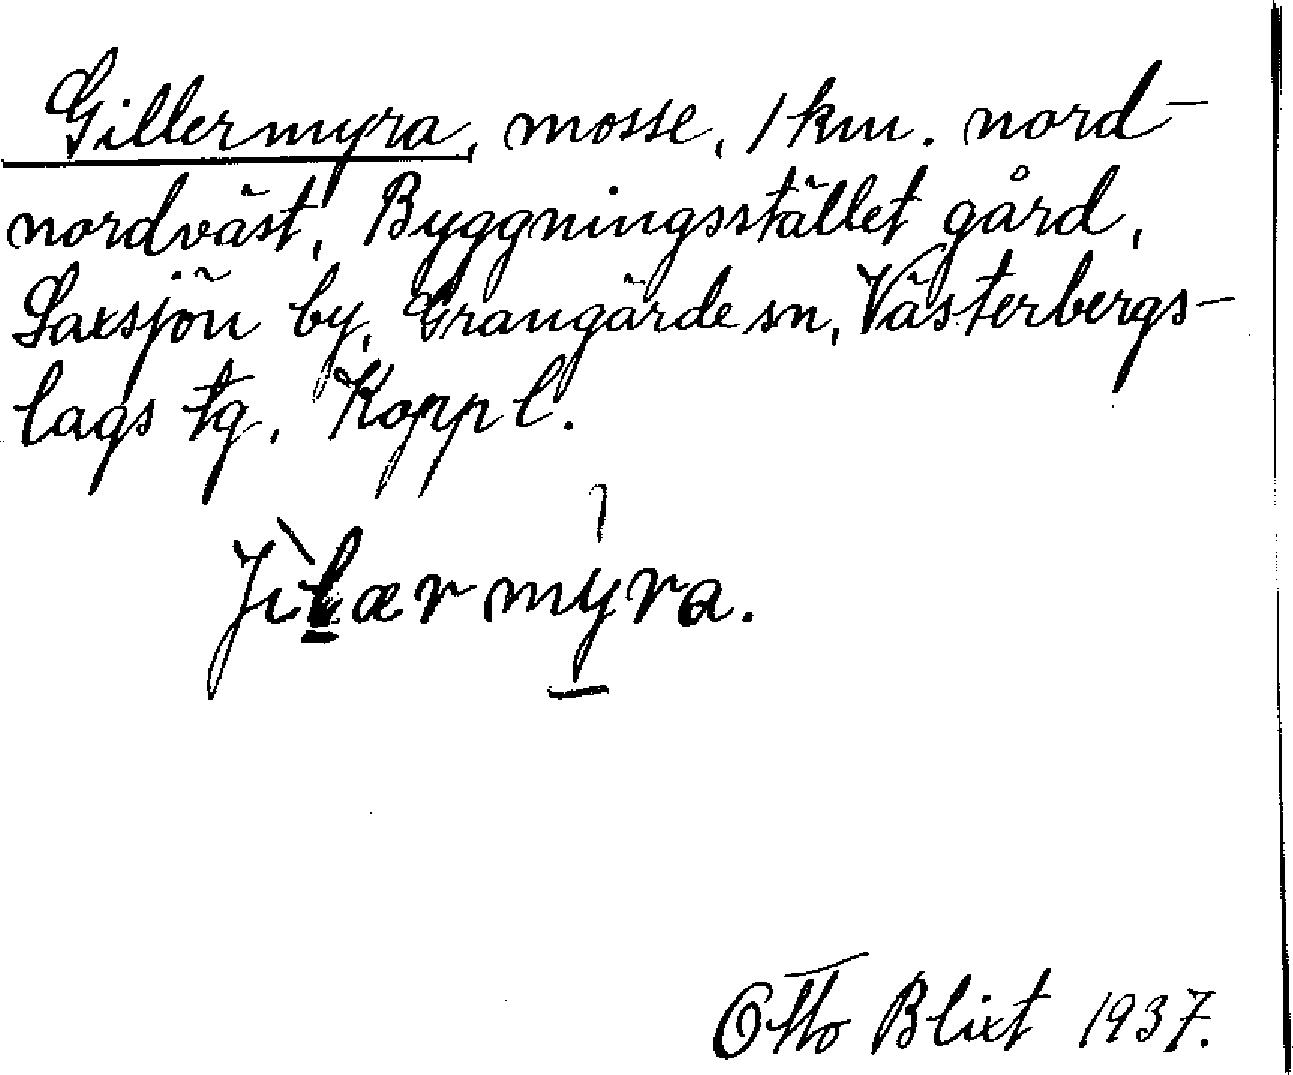 Gillermyra, mosse, 1 km. nord-
nordväst, Byggningsstället gård,
Saxsjön by, Grangärde sn, Västerbergs-
lags tg, Kopp l.
Jìlærmyra.
Otto Blixt 1937.